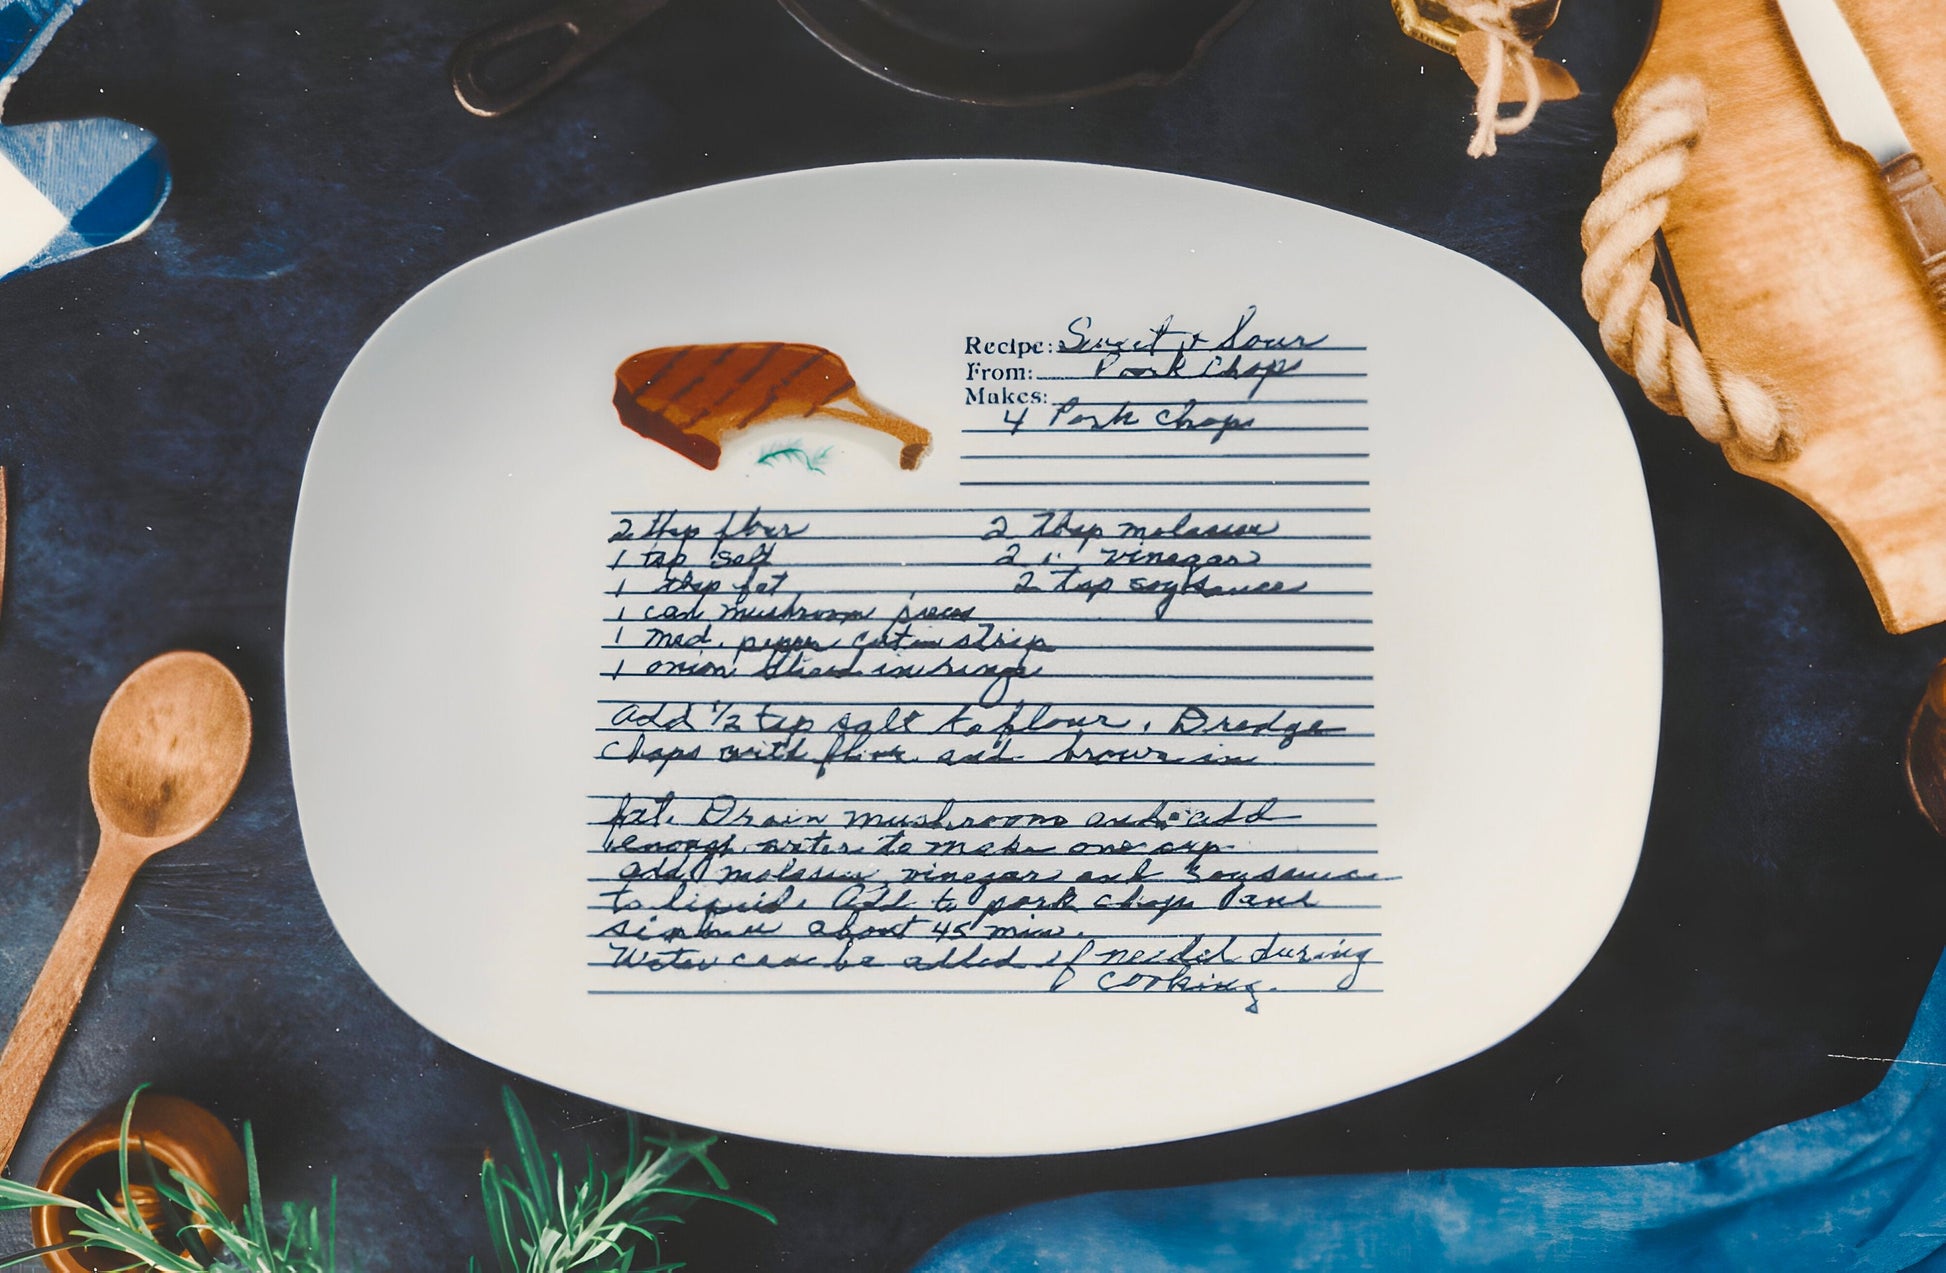 Recipe: Sweet & Sour
From: Pork Chops
Makes:
4 Pork Chops
2 tbsp flour
1 tsp salt
1 tbsp fat
1 can mushroom pieces
1 med. pepper cut in strip
1 onion sliced in rings
2 Tbsp molasses
2 " vinegar
2 tsp soy sauce
Add 1/2 tsp salt to flour. Dredge
chops with flour and brown in
fat. Drain mushrooms and add
enough water to make one cup.
add molasses, vinegar and soysauce
to liquid. Add to pork chops and
simmer about 45 min.
Water can be added if needed during
cooking.